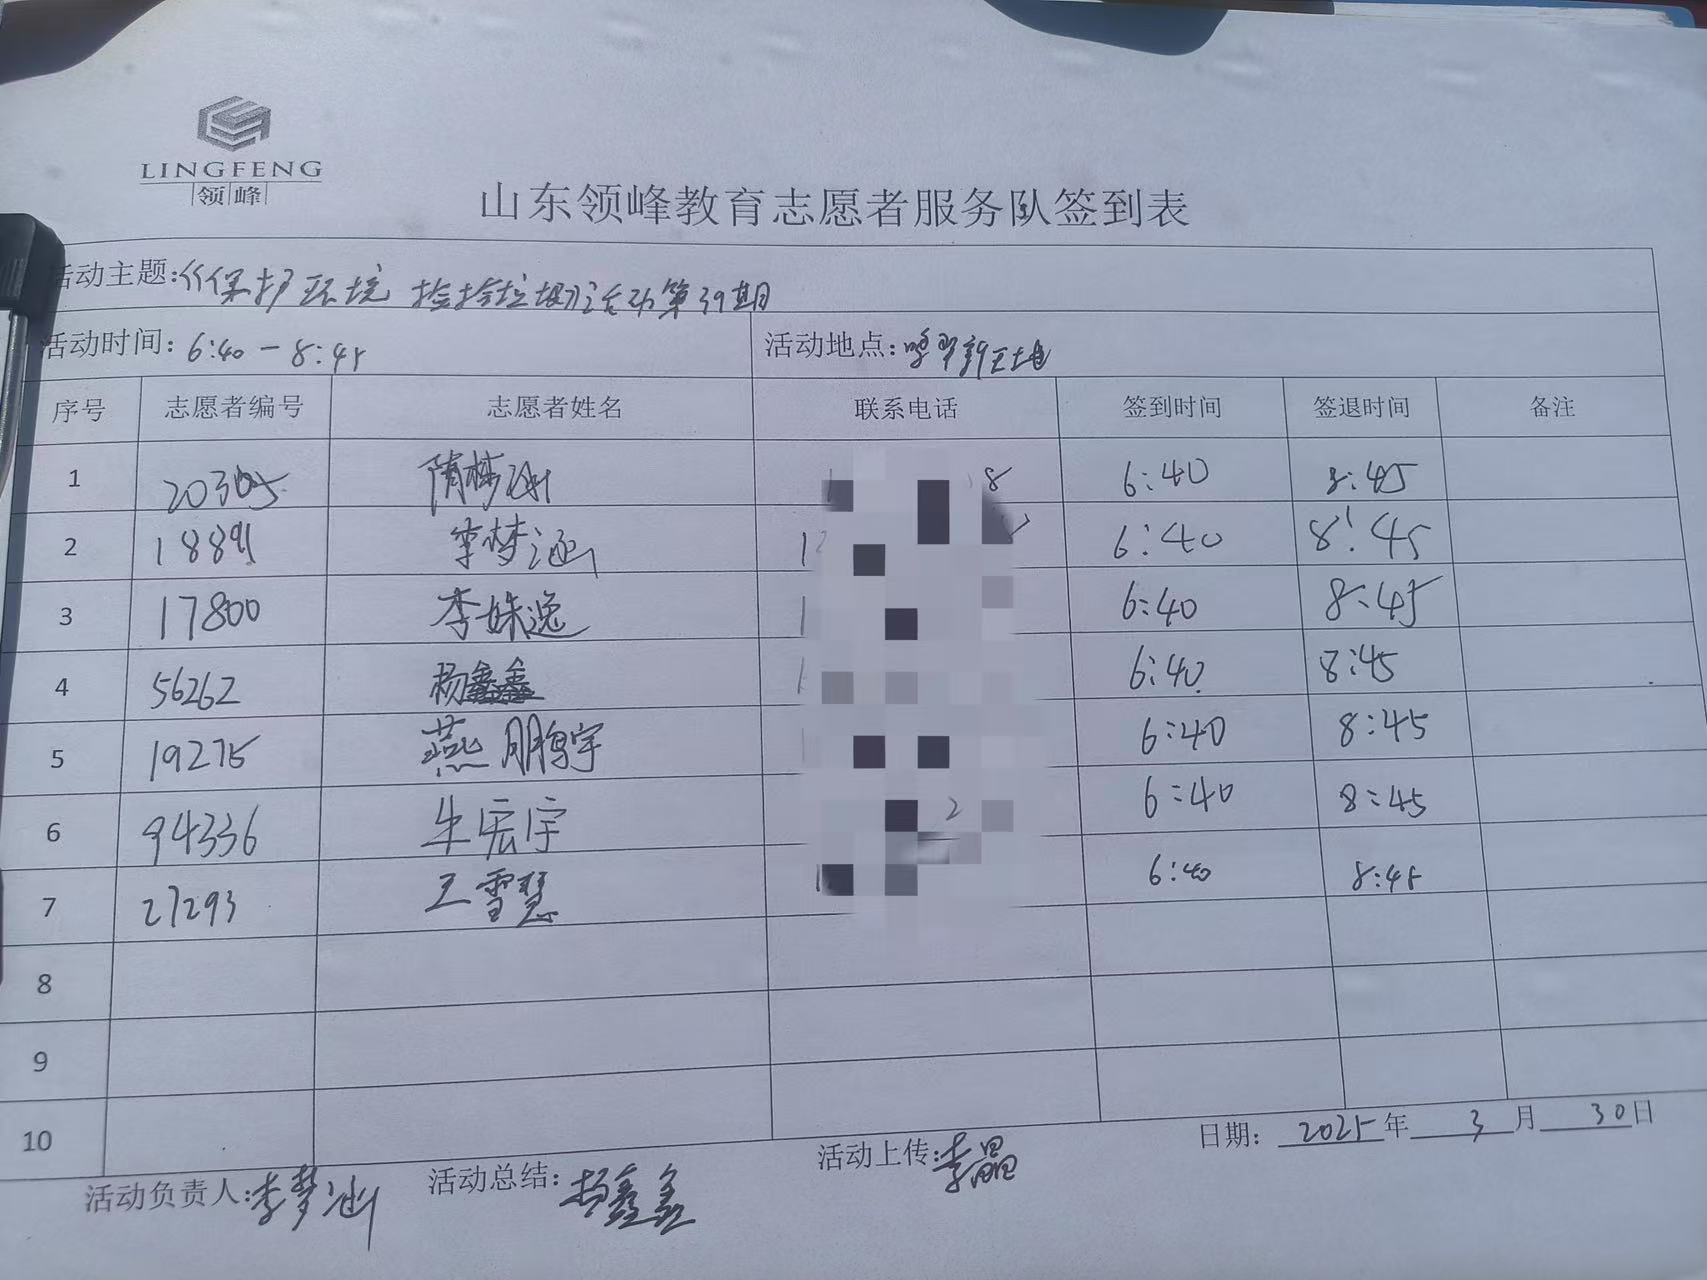 LINGFENG
领峰
山东领峰教育志愿者服务队签到表
活动主题:《保护环境 捡拾垃圾》活动第39期
活动时间: 6:40-8:45 活动地点:
序号 志愿者编号 志愿者姓名 联系电话 签到时间 签退时间 备注
1 20305 隋梦涵 8 6:40 8:45
2 18891 李梦涵 1 6:40 8:45
3 17800 李姝逸 1 6:40 8:45
4 56262 杨鑫鑫 1 6:40 8:45
5 19275 燕鹏宇 6:40 8:45
6 94336 牛宏宇 2 6:40 8:45
7 27293 王雪慧 1 6:40 8:45
8
9
10
活动负责人:李梦涵 活动总结:杨鑫鑫 活动上传:李晶 日期: 2025年 3月 30日